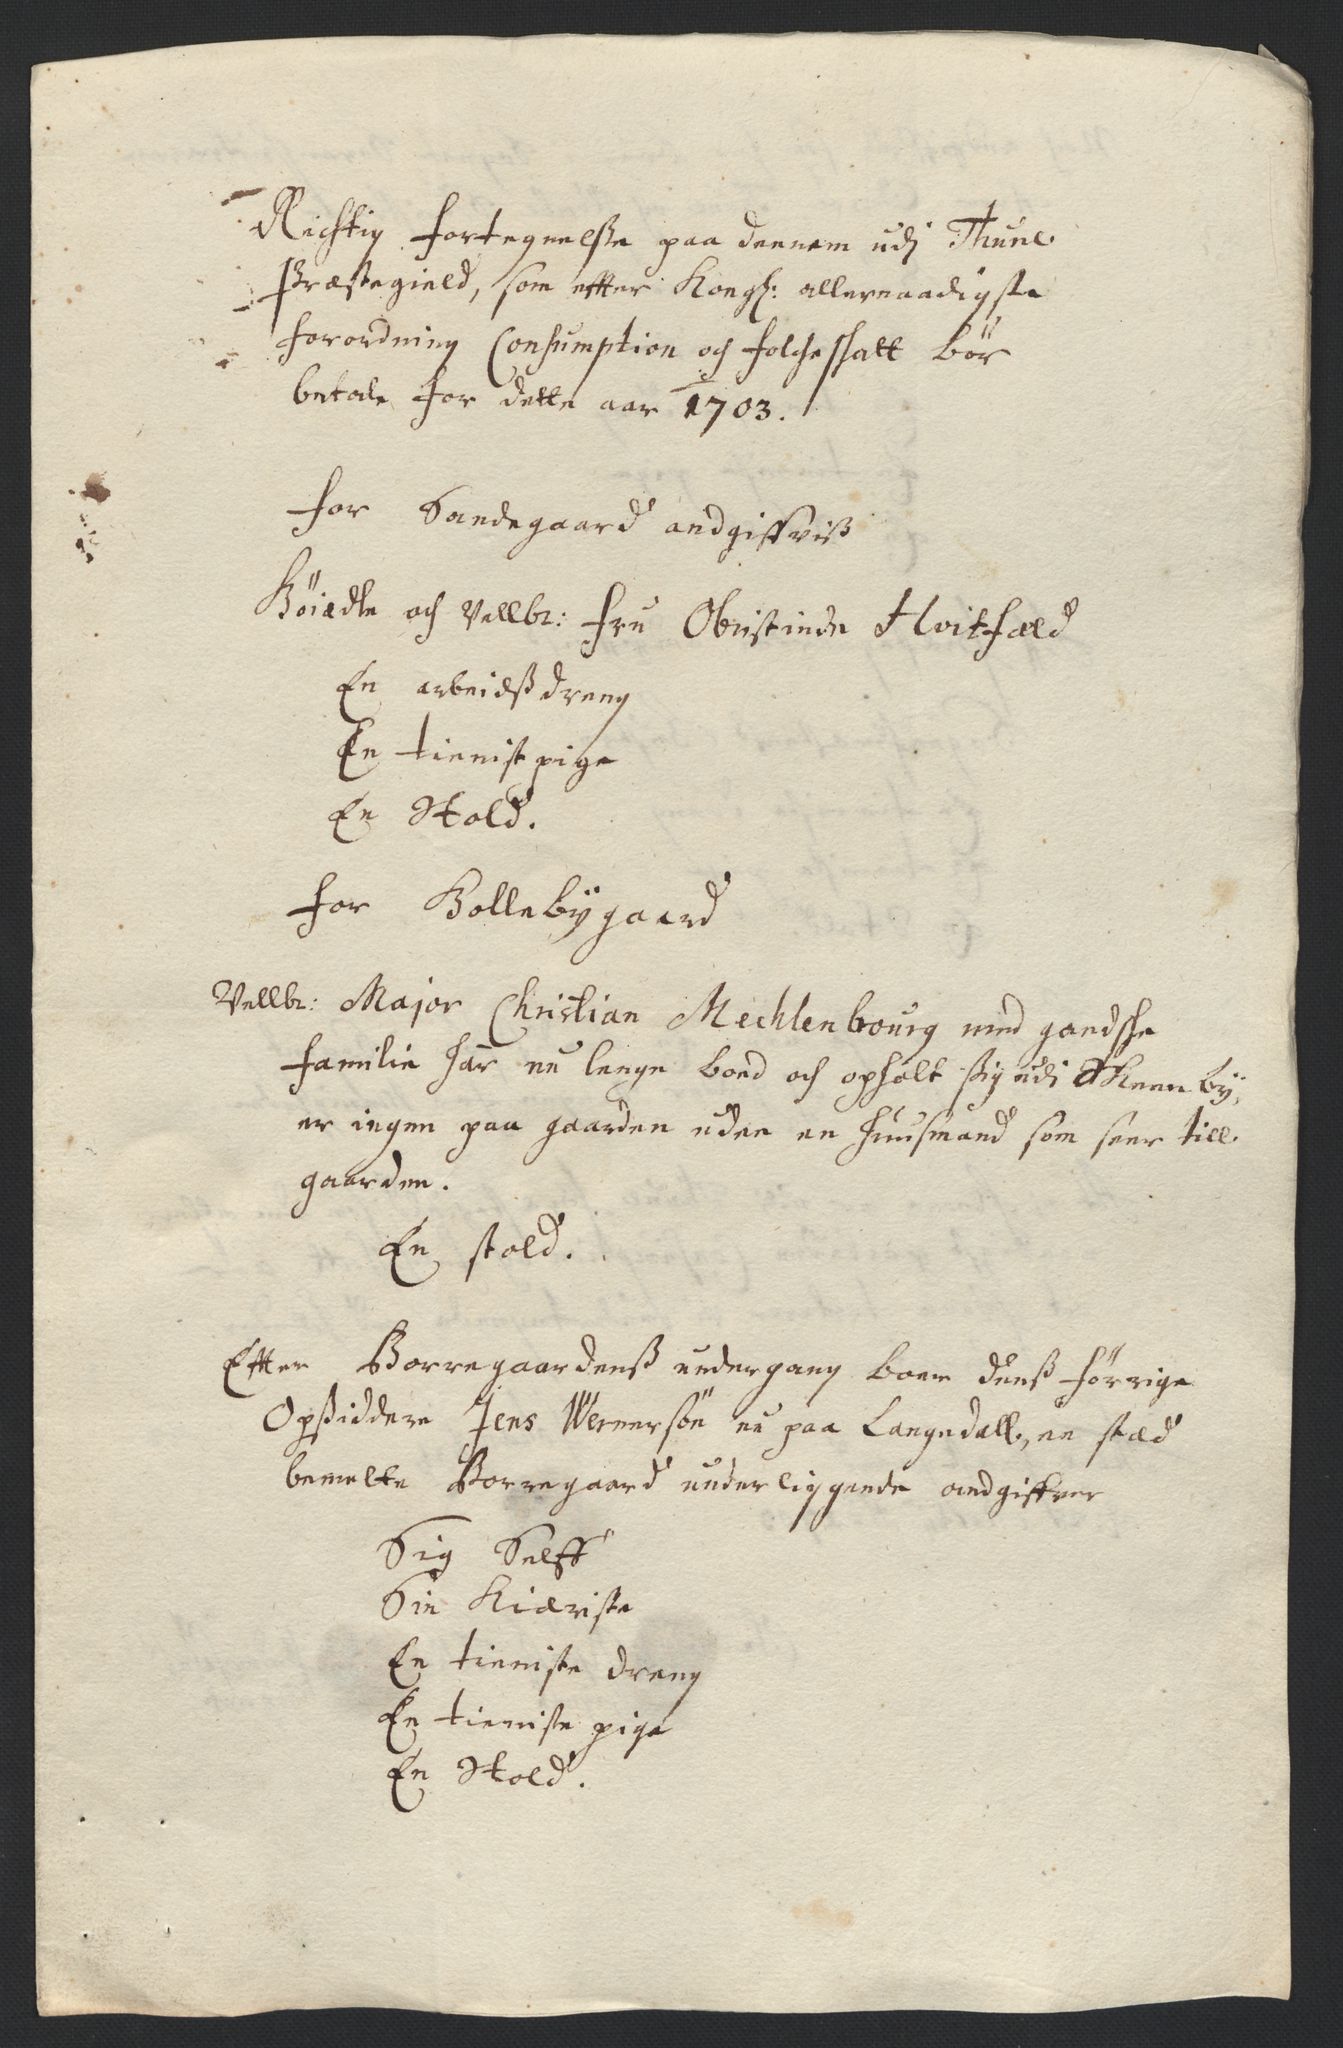 Richtig fortegnelsse paa dennem udj Thune
Præstegield, som effter Kongl: allernaadigste
forordning Consumption och folcheschatt bör
betale for dette aar 1703.
for Sandegaard andgiffviß
Höiædle och Vellbr: Fru Obristinde Hvitfæld
En arbeidßdreng
En tienistpige
En Stold.
for Kollebÿgaard
Vellbr: Major Christian Mechlenbourg med gandsche
familie har nu lenge boed och opholt sig udi Skeen bÿ,
er ingen paa gaarden uden en huusmand som seer till
gaarden.
En stold.
Effter Borregaardenß undergang boer denß förrige
Opsiddere Jens Wernersön nu paa Langedall, en stæd
bemelte Borregaard underliggende andgiffver
Sig Selff
Sin Kiæriste
En tieniste dreng
En tieniste pige
En Stold.